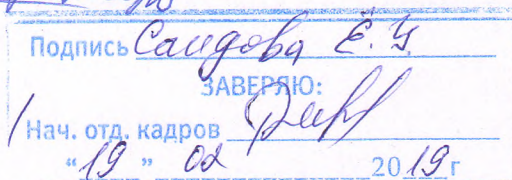 Подпись Саидова Ё. У.
ЗАВЕРЯЮ:
Нач. отд. кадров
“19” 02 2019 г